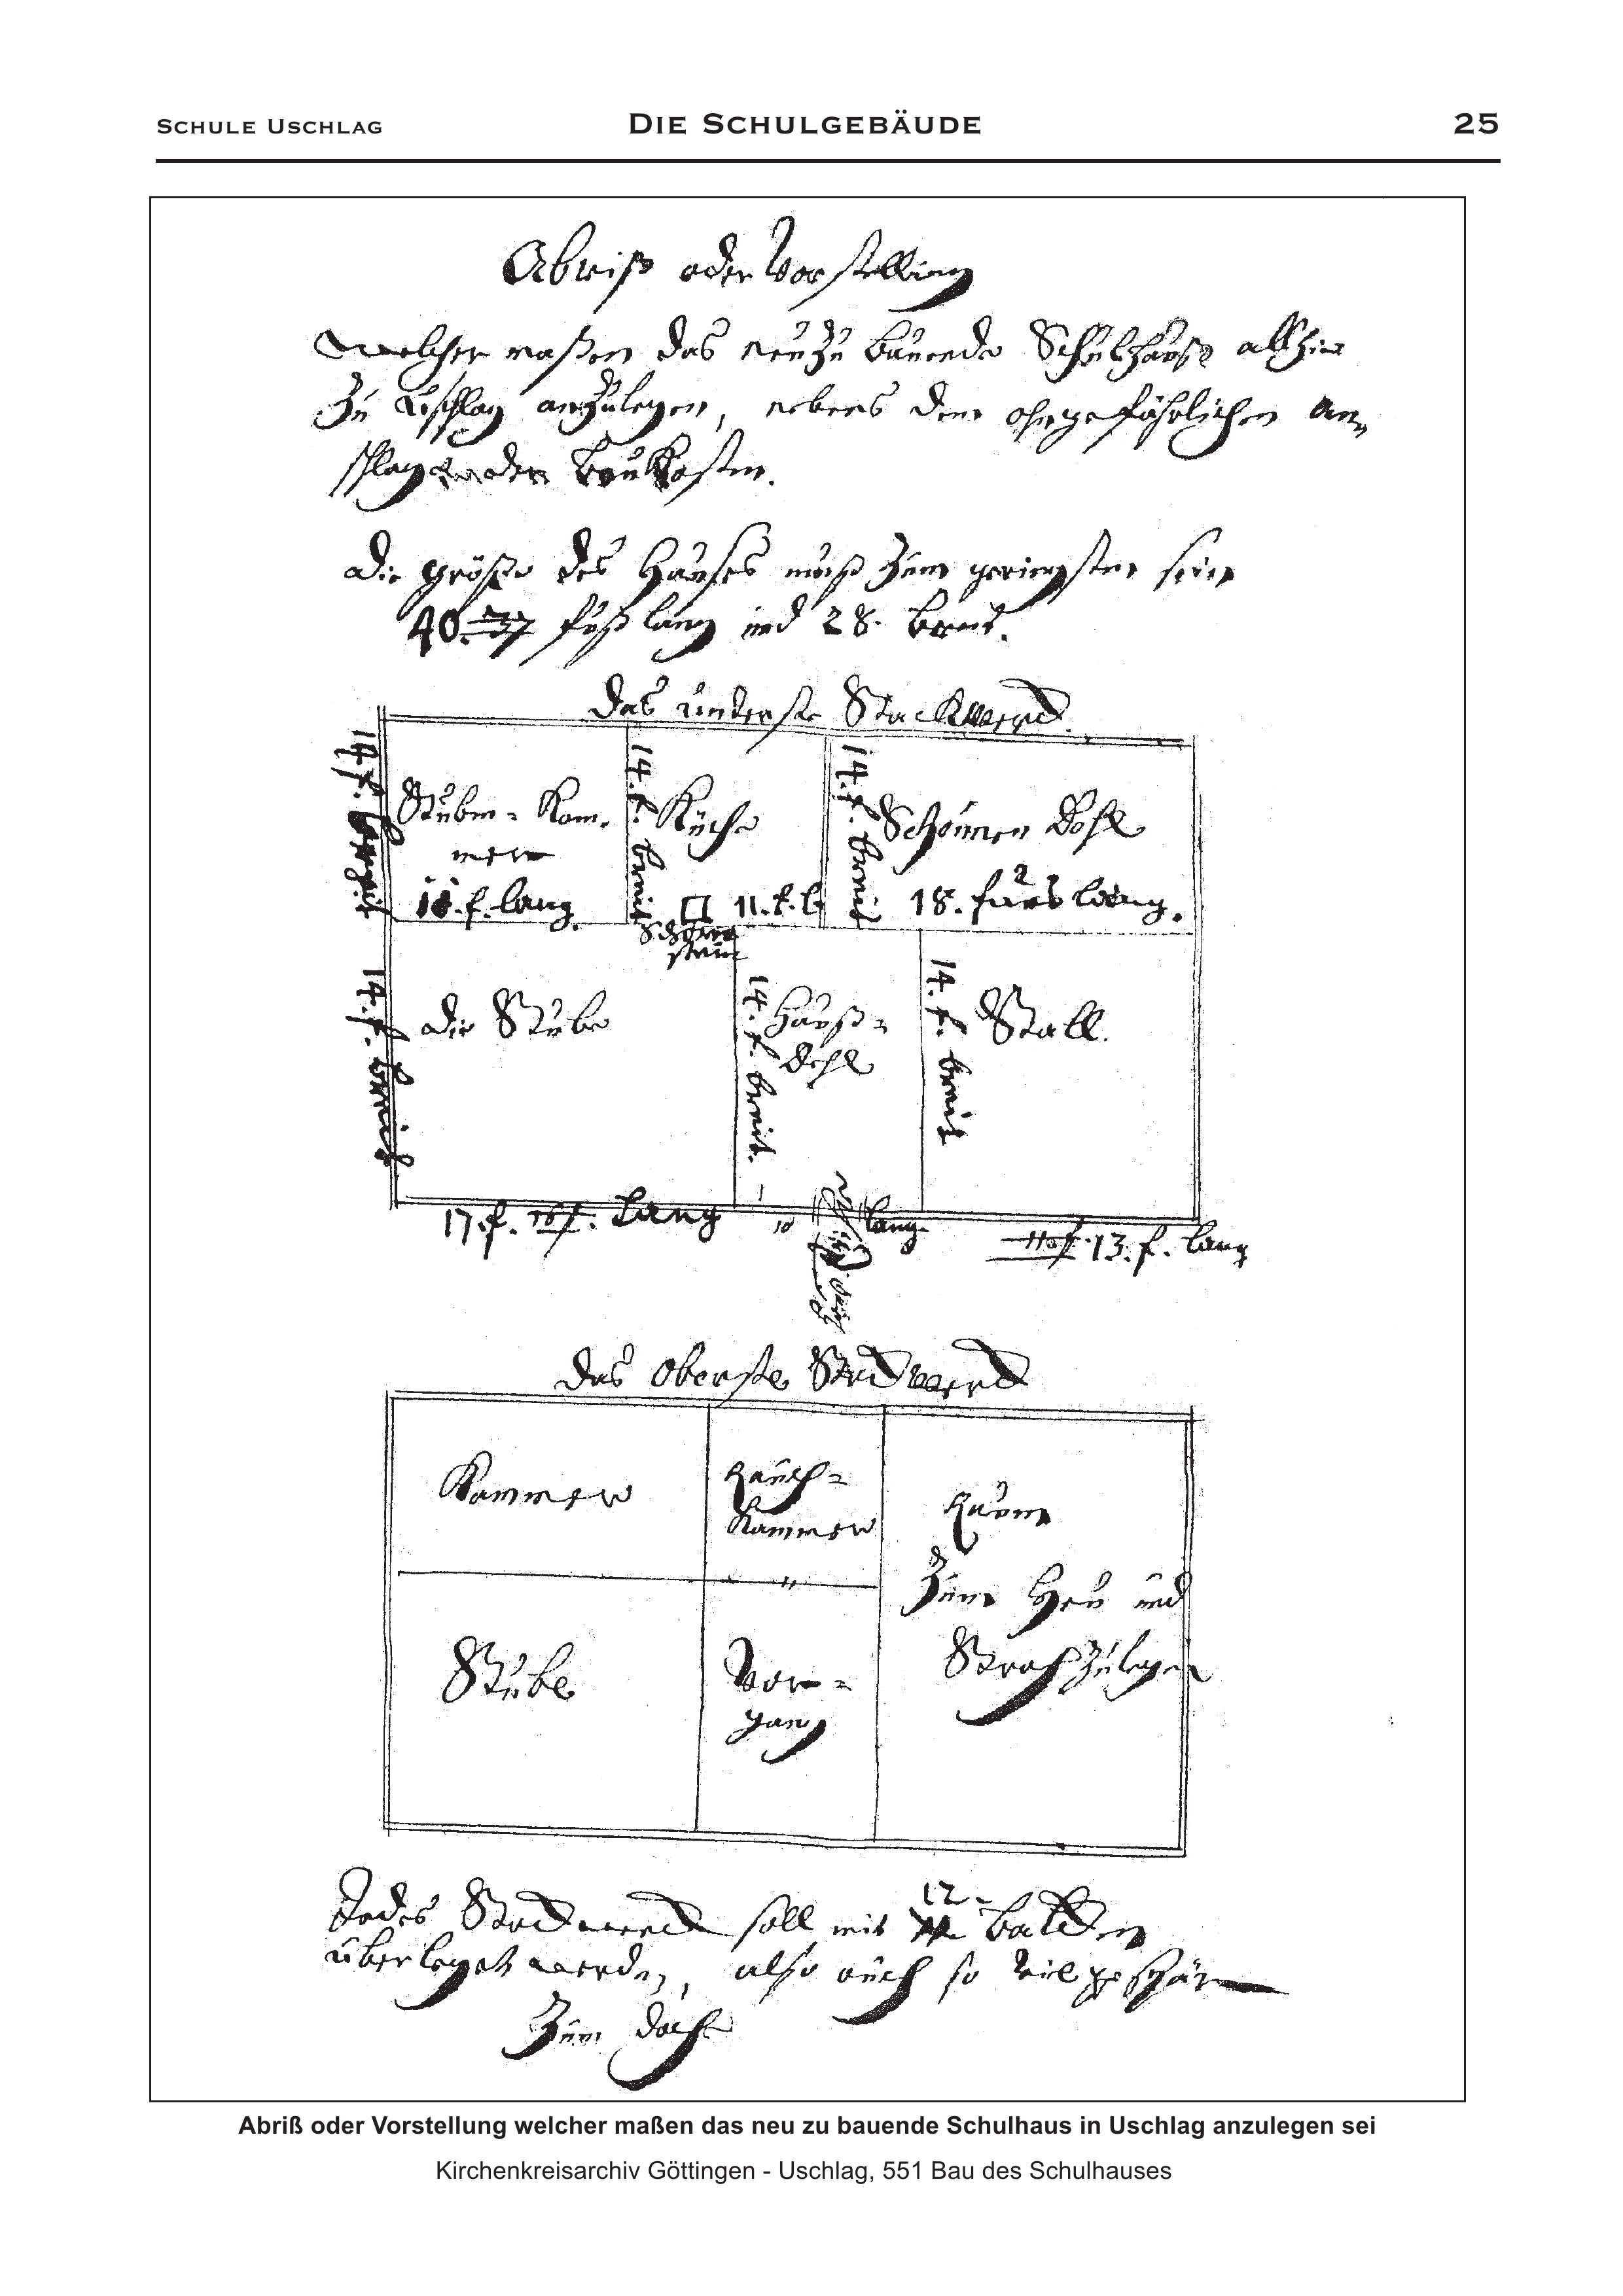 SCHULE USCHLAG
DIE SCHULGEBÄUDE
25
Abriß oder Vorstellung
welcher maßen das neu zu bauende Schulhauß allhier
zu Uschlag anzulegen, nebens dem ohngefährlichen An-
schlag der Baukosten.
Die größe des Hauses muß zum geringsten sein
40. 37 fuß lang und 28. breit.
Das underste Stockwerck
14. f. breit
Stuben-Kam-
mer
lang
14. f. breit
Küche
11. f. l.
Schorn
stein
14. f. breit
Scheunen Dehl
18. fues lang.
14. f. breit
die Stube
14. f. breit.
Hauß-
Dehl
14. f. breit
Stall.
17. f. 16 f. lang
10
lang
13. f. lang
Das Oberste Stockwerck
Kammer
Rauch-
Kammer
Raum
Zum Heu und
Stroh zulegen
Stube
Vor-
gang
Jedes Stockwerck soll mit 12 balcken
überleget werden, also auch so viel gespär
Zum dach
Abriß oder Vorstellung welcher maßen das neu zu bauende Schulhaus in Uschlag anzulegen sei
Kirchenkreisarchiv Göttingen - Uschlag, 551 Bau des Schulhauses